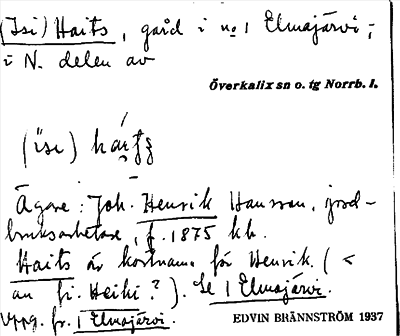 (Isi) Haits, gård i no 1 Elmajärvi,
i N. delen av
Överkalix sn o. tg Norrb. l.
(ist)
Ägare: Joh. Henrik Hansson, jord-
bruksarbetare, f. 1875 kh.
Haits är kortnamn för Henrik. (<
av fi. Heiki?). Se 1 Elmajärvi.
Uppg. fr. 1 Elmajärvi.
EDVIN BRÄNNSTRÖM 1937